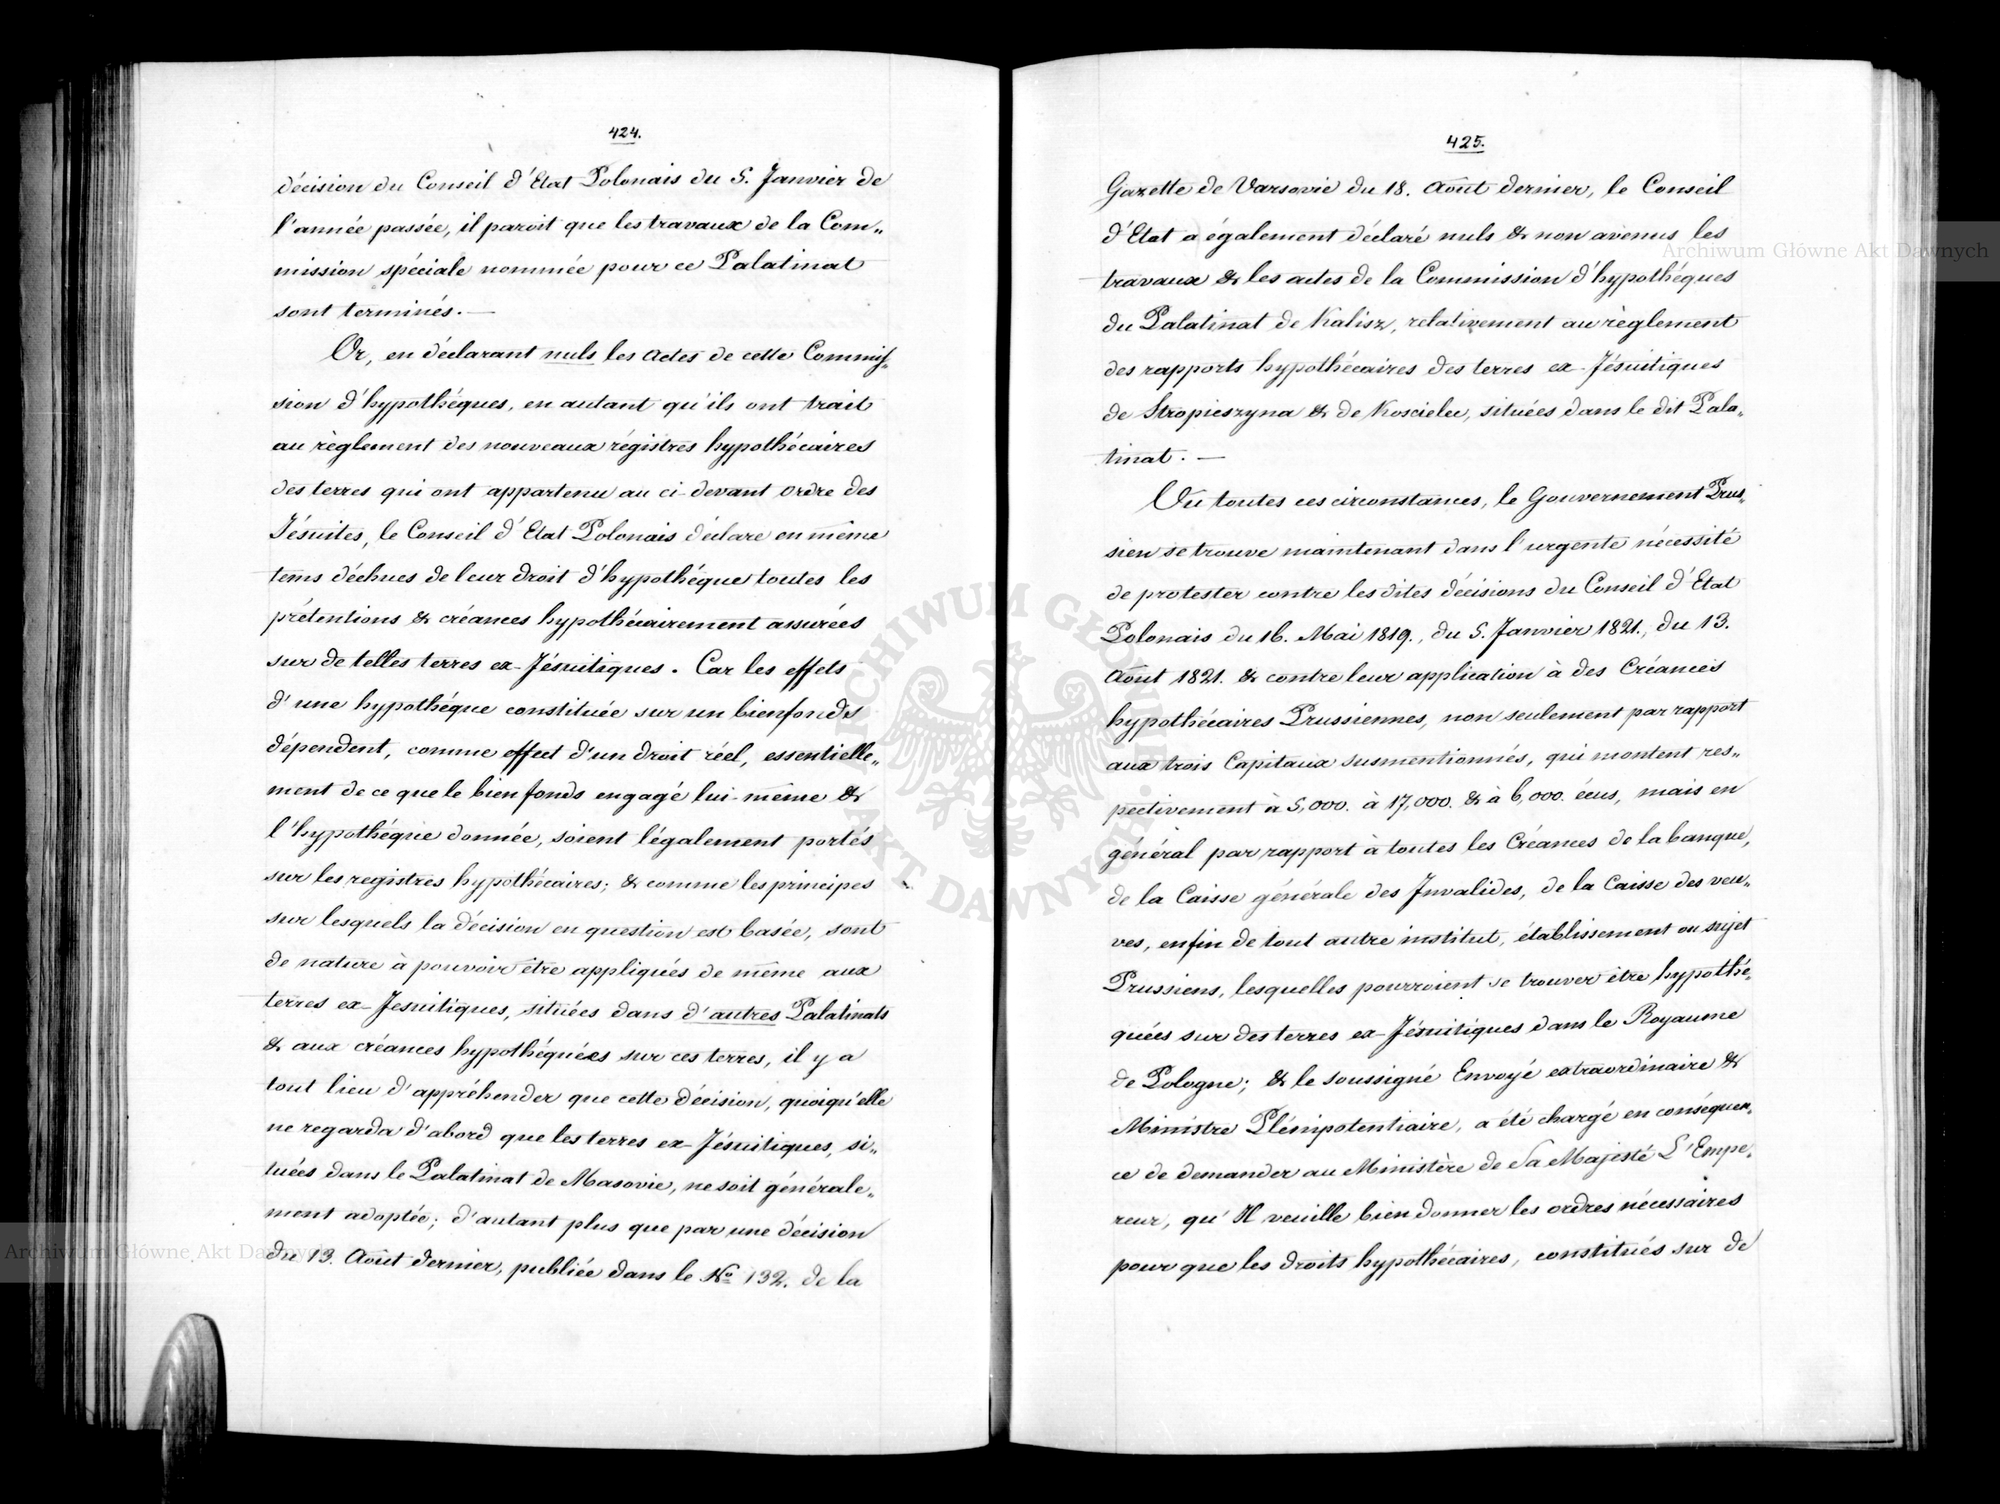 424.
décision du Conseil d'Etat Polonais du 5. Janvier de
l'année passée, il paroit que les travaux de la Com„
mission spéciale nommée pour ce Palatinat
sont terminés. —
Or, en déclarant nuls les actes de cette Commis„
sion d'hypothéques, en autant qu'ils ont trait
au règlement des nouveaux régistres hypothécaires
des terres qui ont appartenu au ci-devant ordre des
Jésuites, le Conseil d'Etat Polonais déclare en même
tems déchues de leur droit d'hypothéque toutes les
prétentions & créances hypothécairement assurées
sur de telles terres ex-Jésuitiques. Car les effets
d'une hypothéque constituée sur un bienfonds
dépendent, comme effect d'un droit réel, essentielle„
ment de ce que le bienfonds engagé lui-même &
l'hypothéque donnée, soient légalement portés
sur les registres hypothécaires; & comme les principes
sur lesquels la décision en question est basée, sont
de nature à pouvoir être appliqués de même aux
terres ex-Jesuitiques, situées dans d'autres Palatinats
& aux créances hypothéquées sur ces terres, il y a
tout lieu d'appréhender que cette décision, quoiqu'elle
ne regarda d'abord que les terres ex-Jésuitiques, si„
tuées dans le Palatinat de Masovie, ne soit générale„
ment adoptée; d'autant plus que par une décision
du 13. Août dernier, publiée dans le No 132. de la
425.
Gazette de Varsovie du 18. Août dernier, le Conseil
d'Etat a également déclaré nuls & non avenus les
travaux & les actes de la Commission d'hypothéques
du Palatinat de Kalisz, relativement au règlement
des rapports hypothécaires des terres ex-Jésuitiques
de Stropieszyna & de Koscielec, situées dans le dit Pala„
tinat. —
Vu toutes ces circonstances, le Gouvernement Prus„
sien se trouve maintenant dans l'urgente nécessité
de protester contre les dites décisions du Conseil d'Etat
Polonais du 16. Mai 1819., du 5. Janvier 1821., du 13.
Août 1821. & contre leur application à des Créances
hypothécaires Prussiennes, non seulement par rapport
aux trois Capitaux susmentionnés, qui montent res„
pectivement à 5,000. à 17,000. & à 6,000. écus, mais en
général par rapport à toutes les Créances de la banque,
de la Caisse générale des Invalides, de la Caisse des veu„
ves, enfin de tout autre institut, établissement ou sujet
Prussiens, lesquelles pourroient se trouver être hypothé„
quées sur des terres ex-Jésuitiques dans le Royaume
de Pologne; & le soussigné Envoyé extraordinaire &
Ministre Plénipotentiaire, a été chargé en conséquen„
ce de demander au Ministère de Sa Majesté L'Empe„
reur, qu'Il veuille bien donner les ordres nécessaires
pour que les droits hypothécaires, constitués sur de
Archiwum Główne Akt Dawnych
Archiwum Główne Akt Dawnych
ARCHIWUM GŁÓWNE AKT DAWNYCH